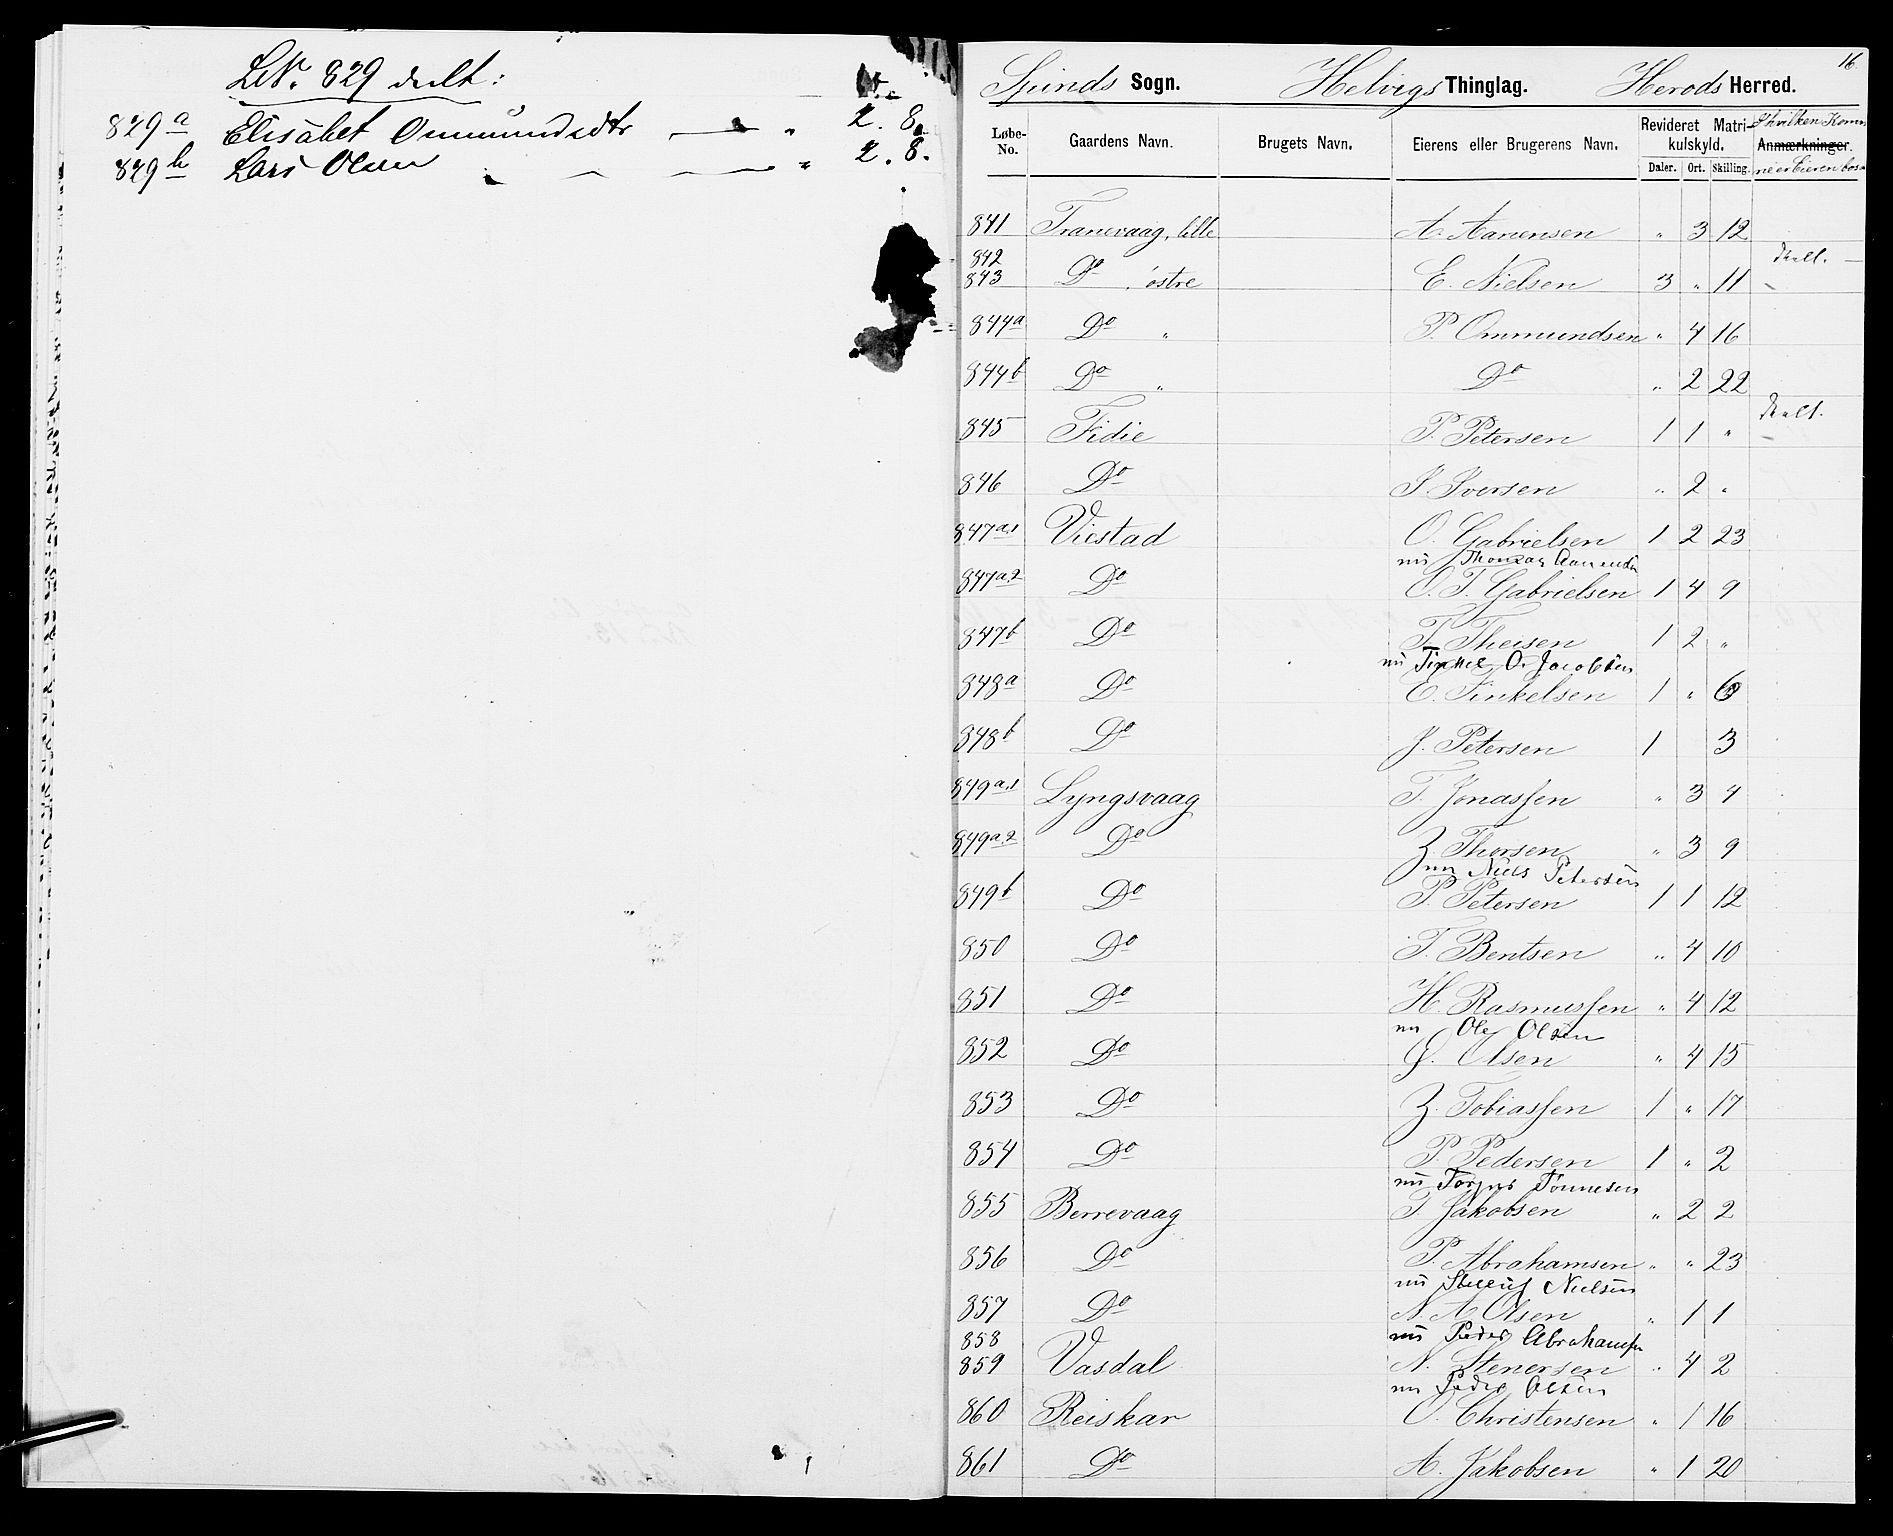 LNr. 829 deelt:
829a Elisabet Ommundsdtr — " 2. 8.
829b Lars Olsen " — — " 2. 8.
16
Spinds Sogn. Helvigs Thinglag. Herods Herred.
Løbe-No. Gaardens Navn. Brugets Navn. Eierens eller Brugerens Navn. Revideret Matrikulskyld. Daler. Ort. Skilling. Anmærkninger. I hvilken Kommune er Eieren bos.
841 Tranevaag, lille A. Aanensen " 3 12
842 deelt. —
843 Do , østre E. Nielsen 3 " 11
844a Do " P. Ommundsen " 4 16
844b Do " Do " 2 22
deelt.
845 Fidie P. Petersen 1 1 "
846 Do I. Iversen " 2 "
847a,1 Viestad O. Gabrielsen 1 2 23
nu Thomas
847a,2 Do O. T. Gabrielsen 1 4 9
847b Do T. Theisen 1 2 "
nu Tinkel O. Jacobsen
848a Do E. Tinkelsen 1 " 6
848b Do J. Petersen 1 3
849a,1 Lyngsvaag T. Jonassen " 3 4
849a,2 Do Z. Thorsen " 3 9
nu Niels Petersen
849b Do P. Petersen 1 1 12
850 Do T. Bentsen " 4 10
851 Do H. Rasmussen " 4 12
nu Ole Olsen
852 Do G. Olsen " 4 15
853 Do Z. Tobiassen 1 " 17
854 Do P. Pedersen 1 " 2
nu Torjus Tönnesen
855 Berrevaag T. Jakobsen " 2 2
856 Do P. Abrahamsen " " 23
nu Nielsen
857 Do N. A. Olsen " 1 1
858 nu Peder Abrahamsen
859 Vasdal N. Stenersen " 4 2
nu Peder Olsen
860 Reiskar O. Christensen " 1 16
861 Do A. Jakobsen " 1 20